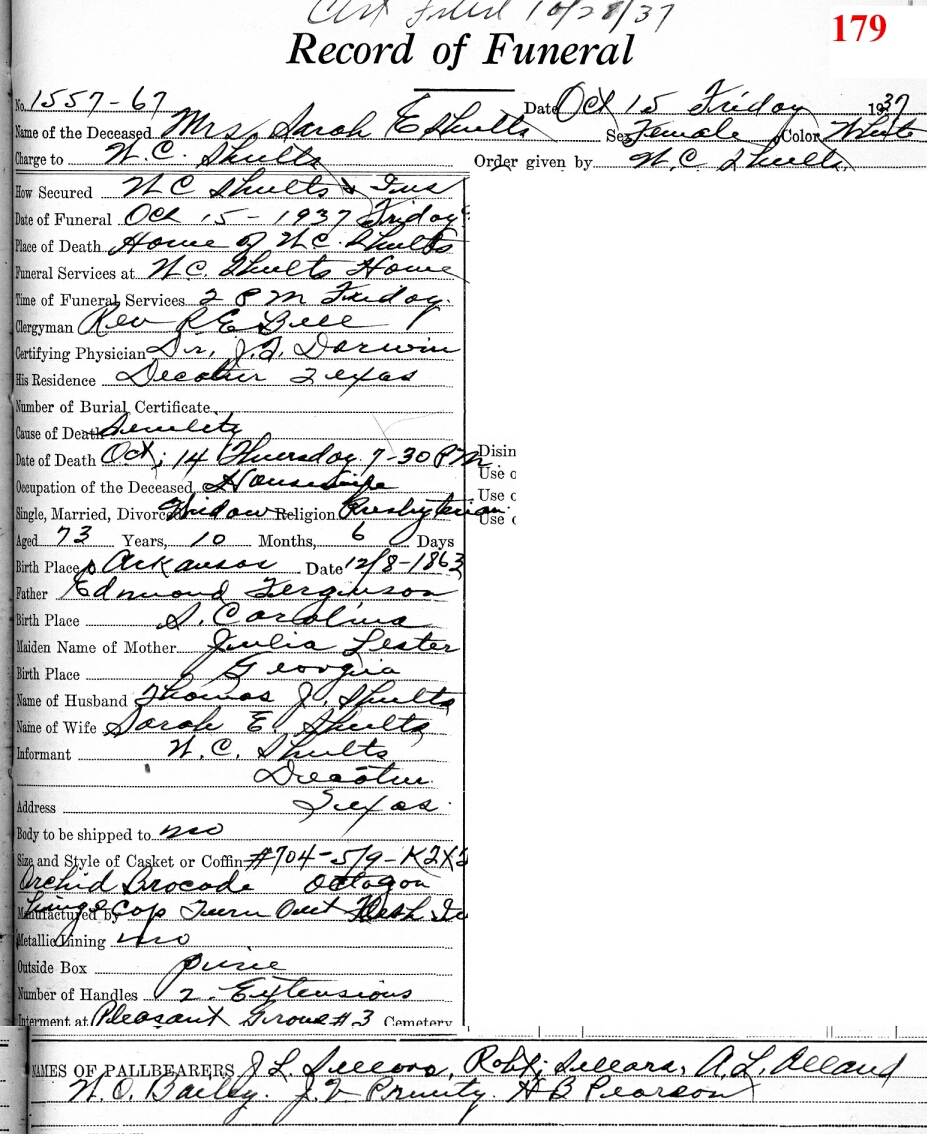 Cert Filed 10/28/37
179
Record of Funeral
No. 1557-67 Date Oct 15 Friday 1937
Name of the Deceased Mrs. Sarah E Shults Sex Female Color White
Charge to W.C. Shults Order given by W.C. Shults
How Secured W C Shults & Ins
Date of Funeral Oct 15-1937 Friday
Place of Death Home of W.C. Shults
Funeral Services at W.C. Shults Home
Time of Funeral Services 2 PM Friday.
Clergyman Rev R E Bell
Certifying Physician Dr. J.F. Darwin
His Residence Decatur Texas
Number of Burial Certificate
Cause of Death Senility
Date of Death Oct; 14 Thursday 7-30 PM Disin
Use o
Occupation of the Deceased Housewife Use o
Single, Married, Divorced Widow Religion Presbyterian Use o
Aged 73 Years, 10 Months, 6 Days
Birth Place Arkansas Date 12/8-1863
Father Edmond Ferguson
Birth Place S. Carolina
Maiden Name of Mother Julia Lester
Birth Place Georgia
Name of Husband Thomas J. Shults
Name of Wife Sarah E. Shults
Informant W.C. Shults
Decatur
Address Texas.
Body to be shipped to no
Size and Style of Casket or Coffin #704-5/9-K2X2
Orchid Brocade Octagon
Manufactured by Hinge Cap Turn Out Flesh In
Metallic Lining no
Outside Box pine
Number of Handles 2 Extensions
Interment at Pleasant Grove #3 Cemetery
NAMES OF PALLBEARERS J L Sellars, Robt; Sellars, A.L. Alland
W.O. Bailey. J V Prunty. H B Pearson